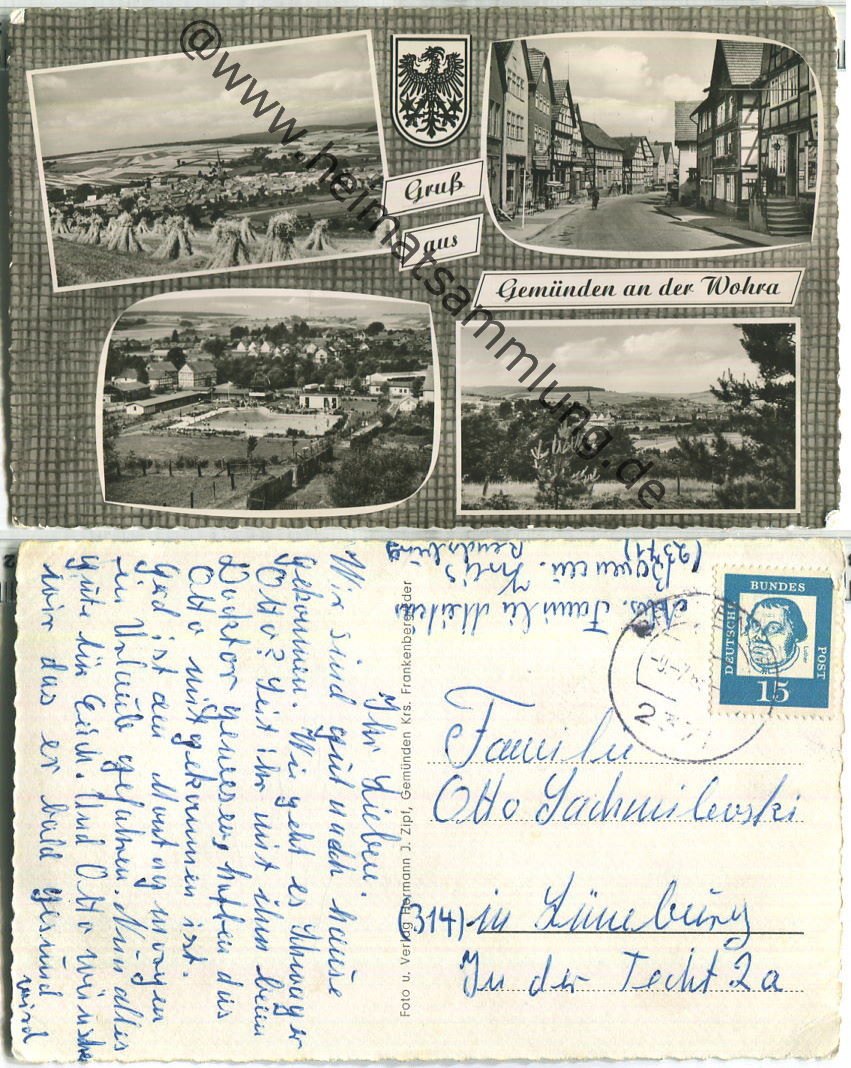 @www.heimatsammlung.de
Gruß
aus
Gemünden an der Wohra
Ihr Lieben.
Wir sind gut nach Hause
gekommen. Wie geht es Schwager
Otto? Seit ihr mit ihm beim
Doktor gewesen, hoffen das
Otto mitgekommen ist.
Gerd ist am Montag morgen
in Urlaub gefahren. Nun alles
gute für Euch. Und Otto wünschen
wir das er bald gesund
wird
Foto u. Verlag Hermann J. Zipf, Gemünden Krs. Frankenberg/Eder
Abs. Familie
Kreis
Rendsburg
(2371)
DEUTSCHE
BUNDES
POST
Luther
15
2371
Familie
Otto Sachmilewski
(314) in Lüneburg
In der Techt 2a